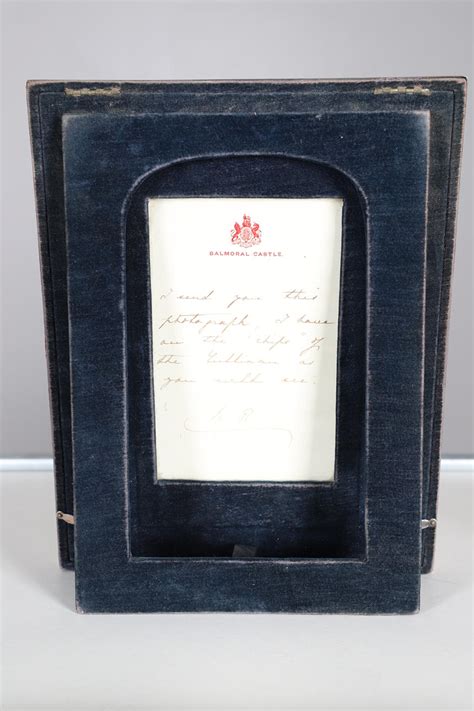 BALMORAL CASTLE.
I send you this
photograph, I have
on the "chips" of
the Cullinan as
you will see.